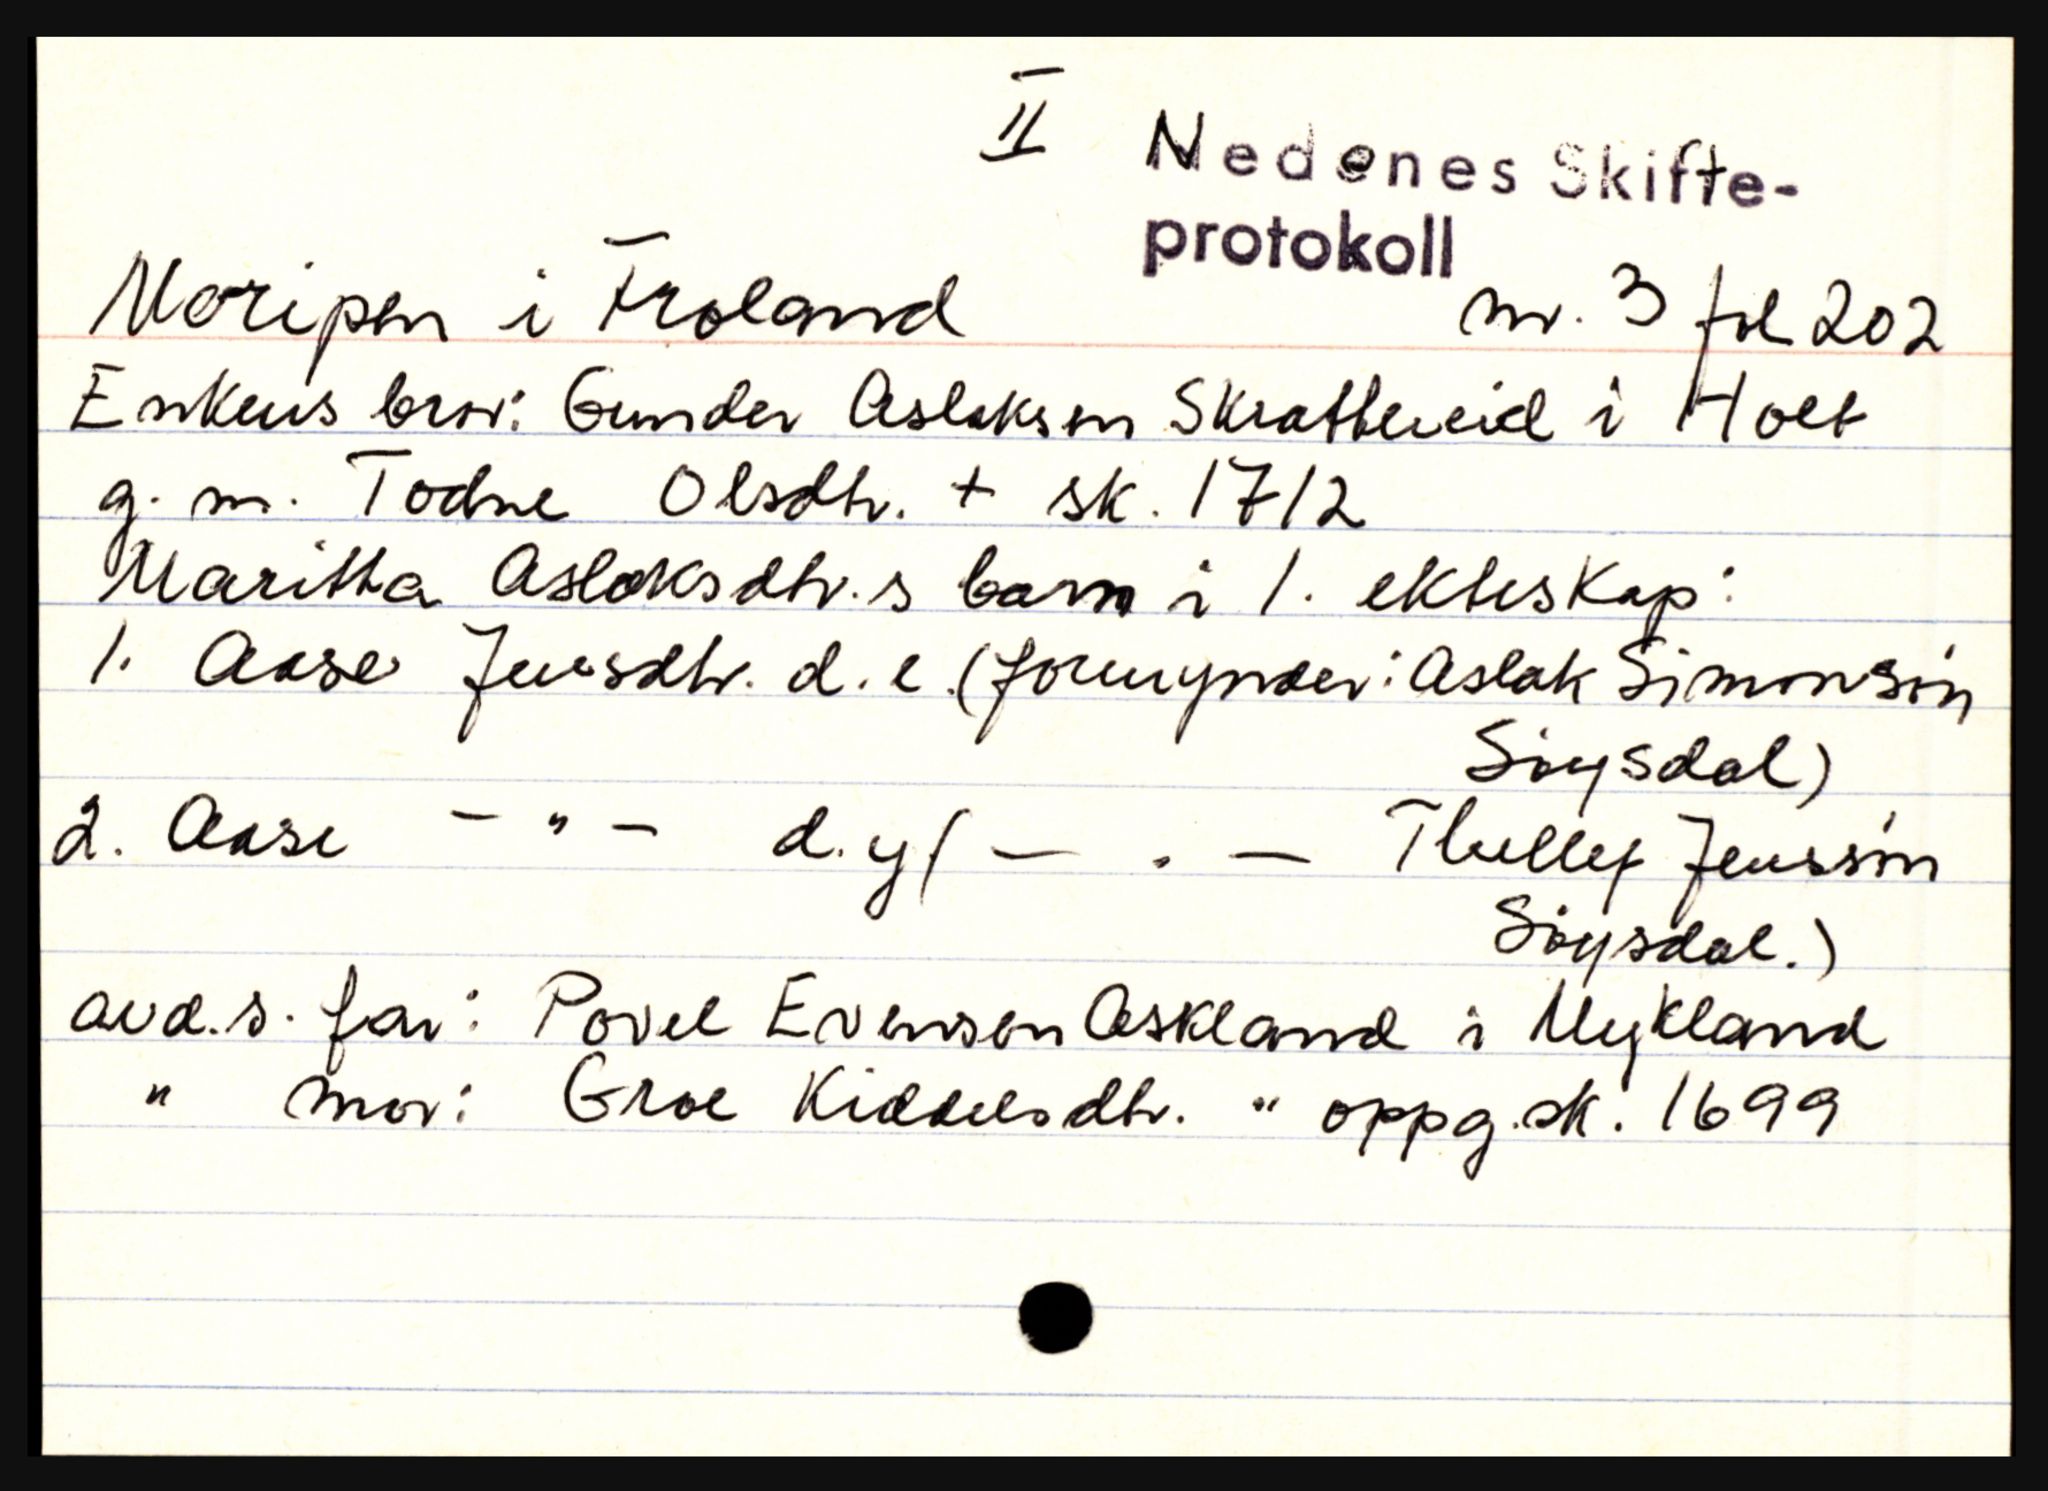 II
Nedenes Skifte-
protokoll
Moripen i Froland nr. 3 fol 202
Enkens bror: Gunder Aslaksen Skrattereid i Holt
g. m. Todne Olsdtr. + sk. 1712
Maritha Aslaksdtr.s barn i 1. ekteskap:
1. Aase Jensdtr. d. e. (formynder: Aslak Simonsøn
Søysdal)
2. Aase - " - d. y ( — . — Thellef Jenssøn
Søysdal.)
avd.s. far: Povel Evensen Askland i Mykland
" mor: Groe Kiddelsdtr. " oppg. sk. 1699